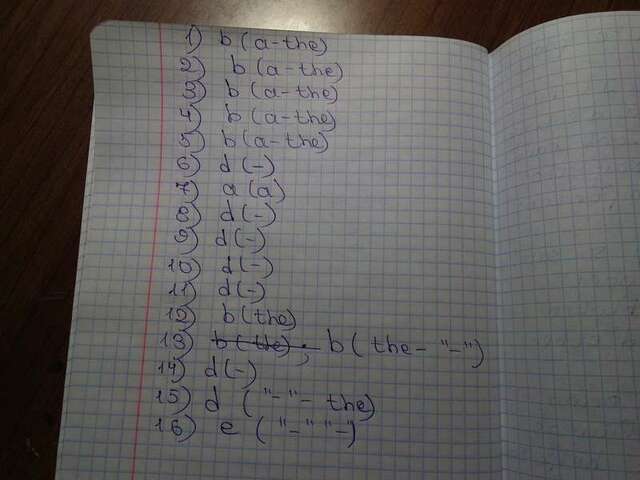 1) b (a-the)
2) b (a-the)
3) b (a-the)
4) b (a-the)
5) b (a-the)
6) d (-)
7) a (a)
8) d (-)
9) d (-)
10) d (-)
11) d (-)
12) b (the)
13) b (the); b (the- "-")
14) d (-)
15) d ("-"- the)
16) e ("-" "-")